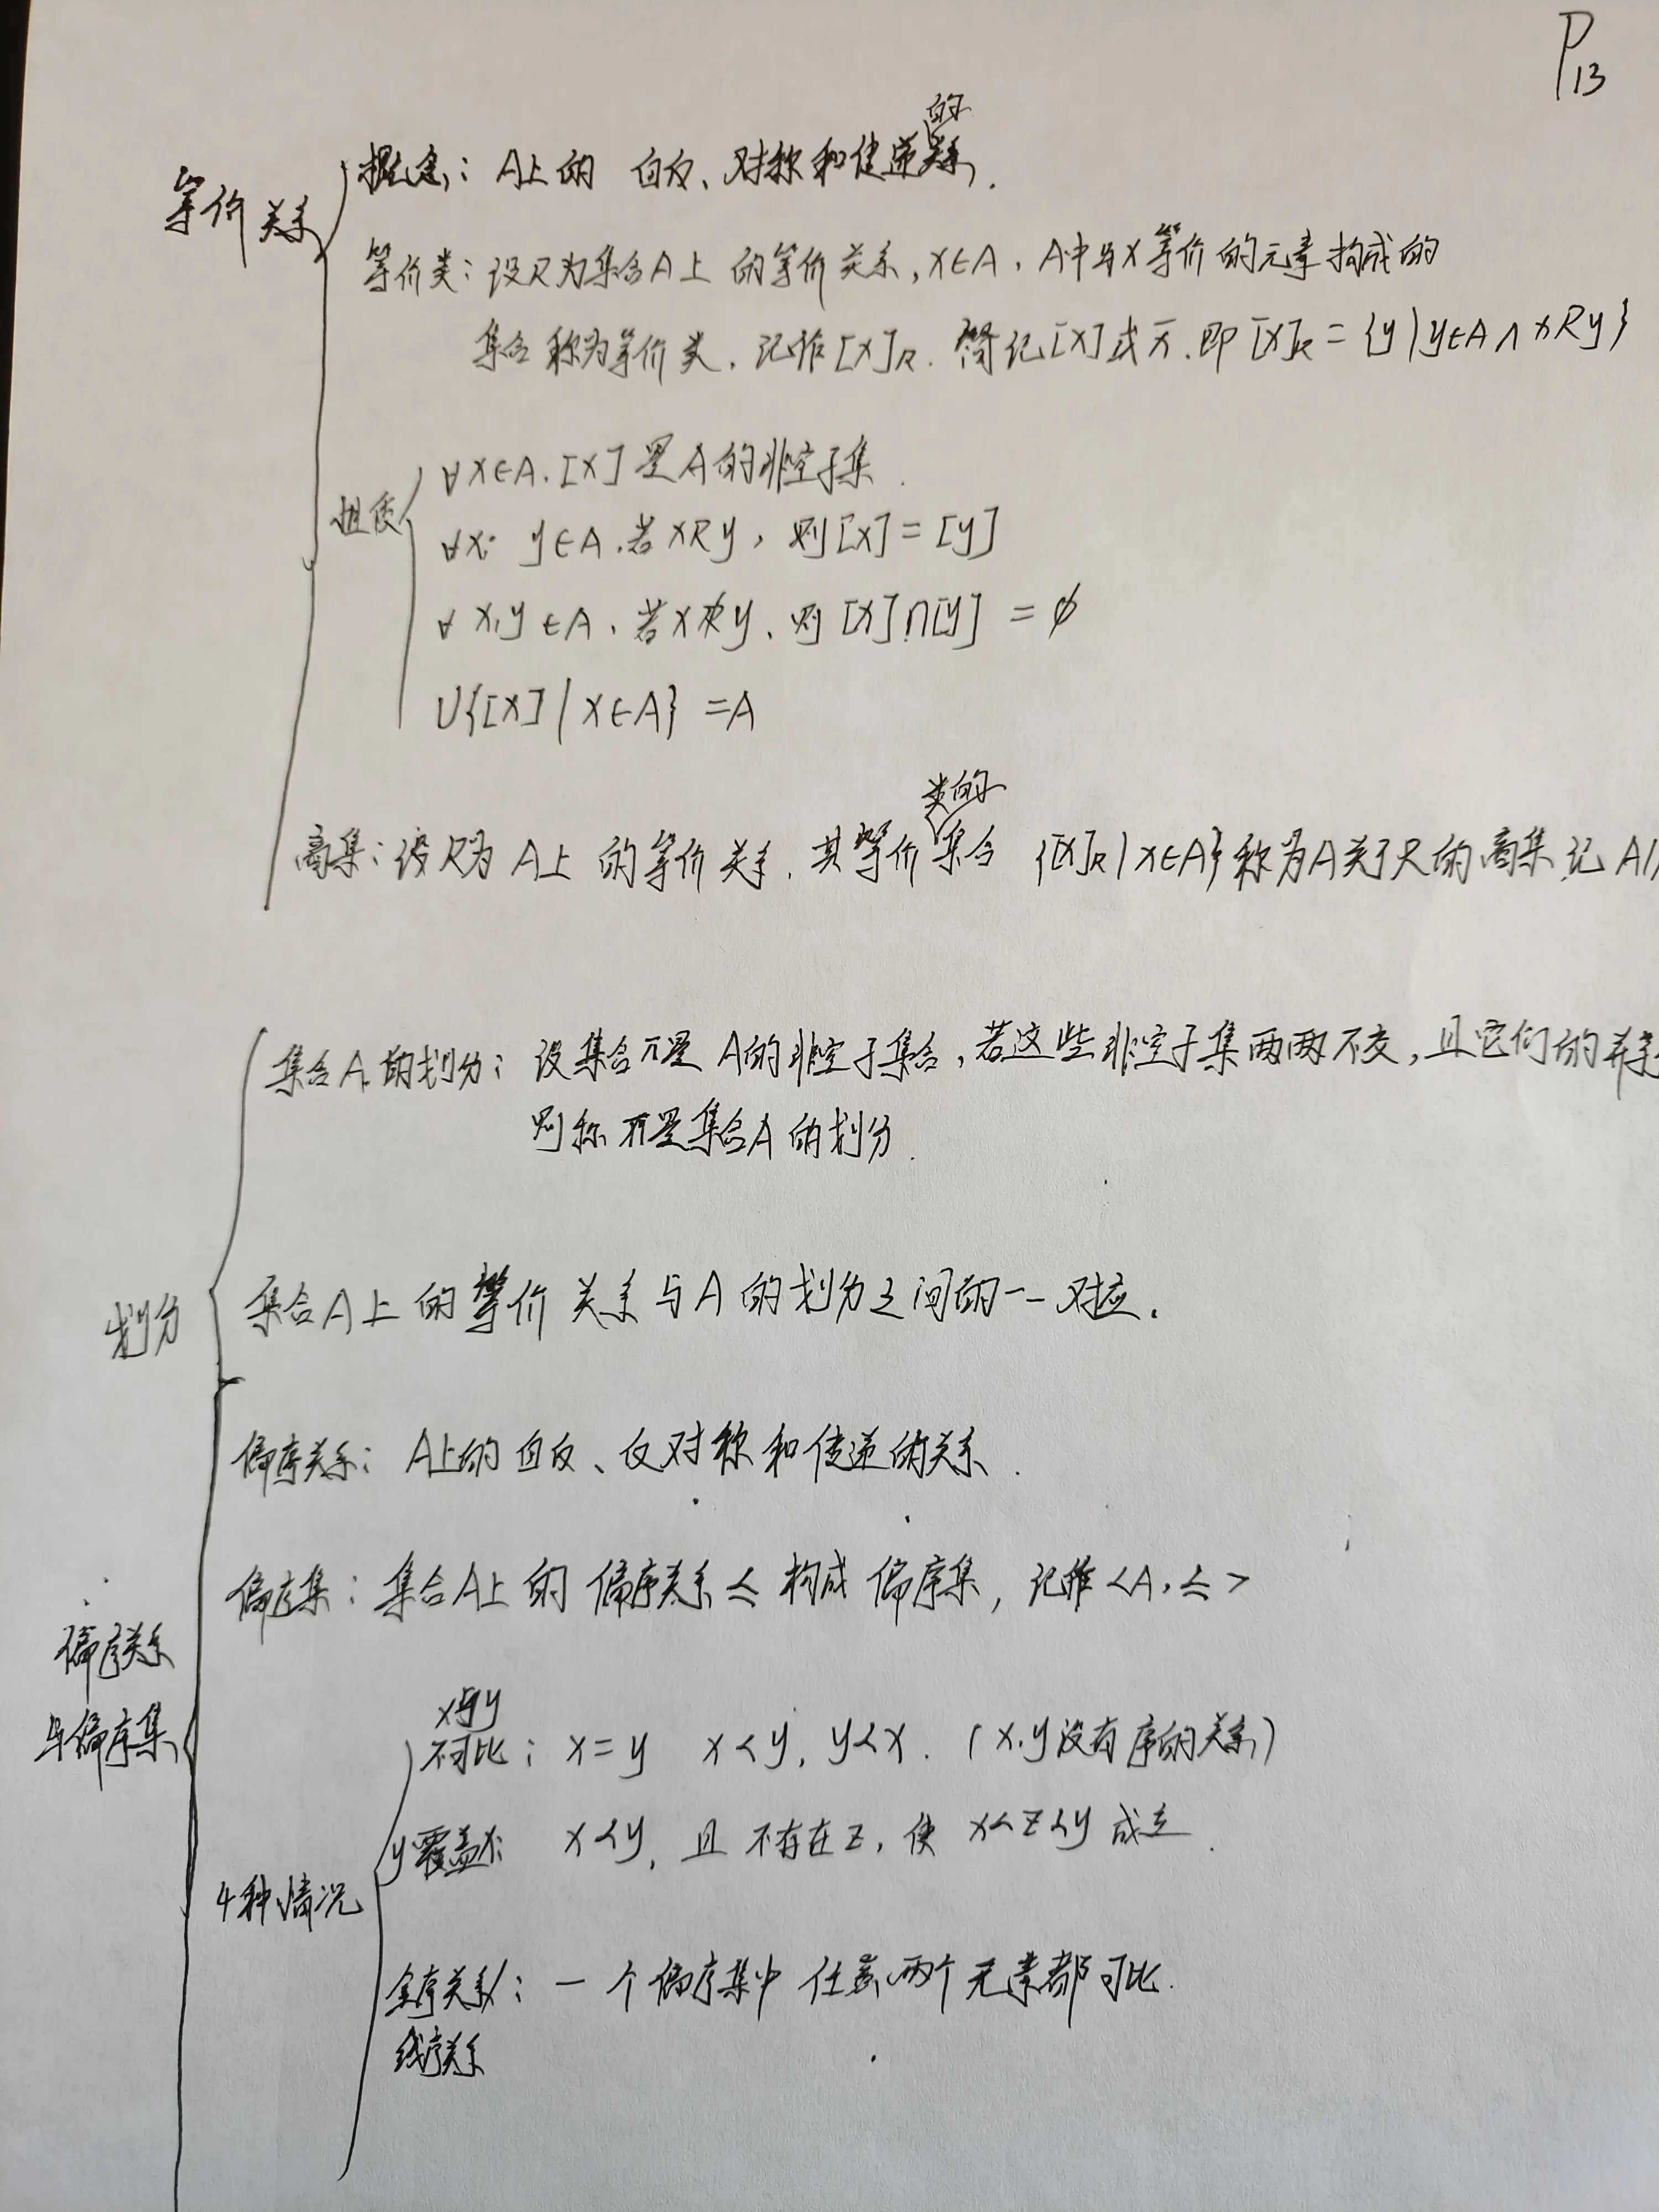 P13
的
等价关系
概念: A上的 自反、对称和传递关系.
等价类: 设R为集合A上的等价关系, x∈A, A中与x等价的元素构成的
集合称为等价类, 记作[x]R. 简记[x]或x̄. 即[x]R = {y|y∈A∧xRy}
性质
∀x∈A. [x]是A的非空子集.
∀x. y∈A. 若xRy, 则[x]=[y]
∀x,y∈A. 若xR̸y、则[x]∩[y]=∅
∪{[x]|x∈A}=A
类的
商集: 设R为A上的等价关系. 其等价集合 {[x]R|x∈A}称为A关于R的商集 记A/
集合A的划分: 设集合π是A的非空子集合, 若这些非空子集两两不交, 且它们的并
则称π是集合A的划分.
划分
集合A上的等价关系与A的划分之间的一一对应.
偏序关系: A上的自反、反对称和传递的关系.
偏序集: 集合A上的偏序关系≤构成偏序集, 记作<A,≤>
偏序关系
与偏序集
x与y
不可比: x=y x<y, y<x. (x,y没有序的关系)
y覆盖x: x<y, 且不存在z, 使x<z<y成立.
4种情况
全序关系/: 一个偏序集中任意两个元素都可比.
线序关系